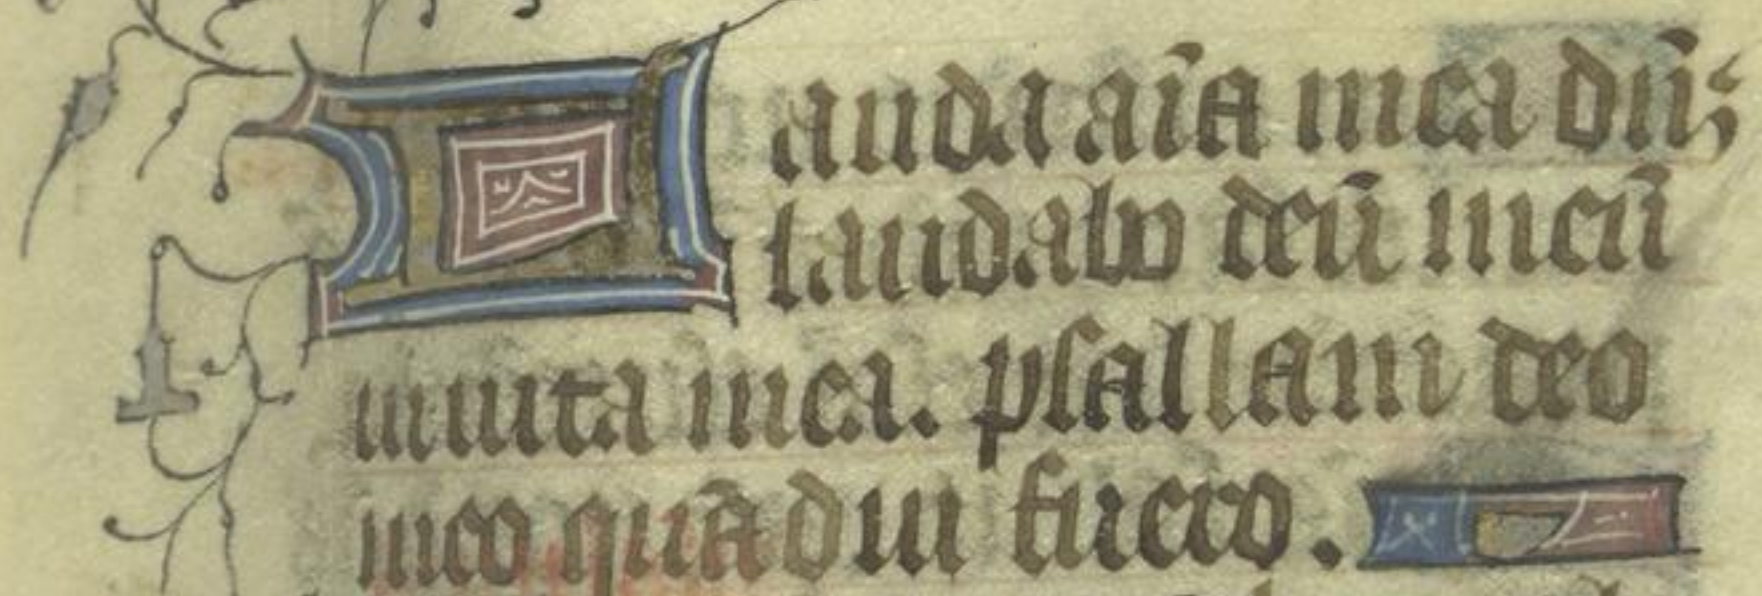 Lauda aīa mea dn̄ꝫ
laudabo deū meū
in uita mea. psallam deo
meo quādiu fuero.